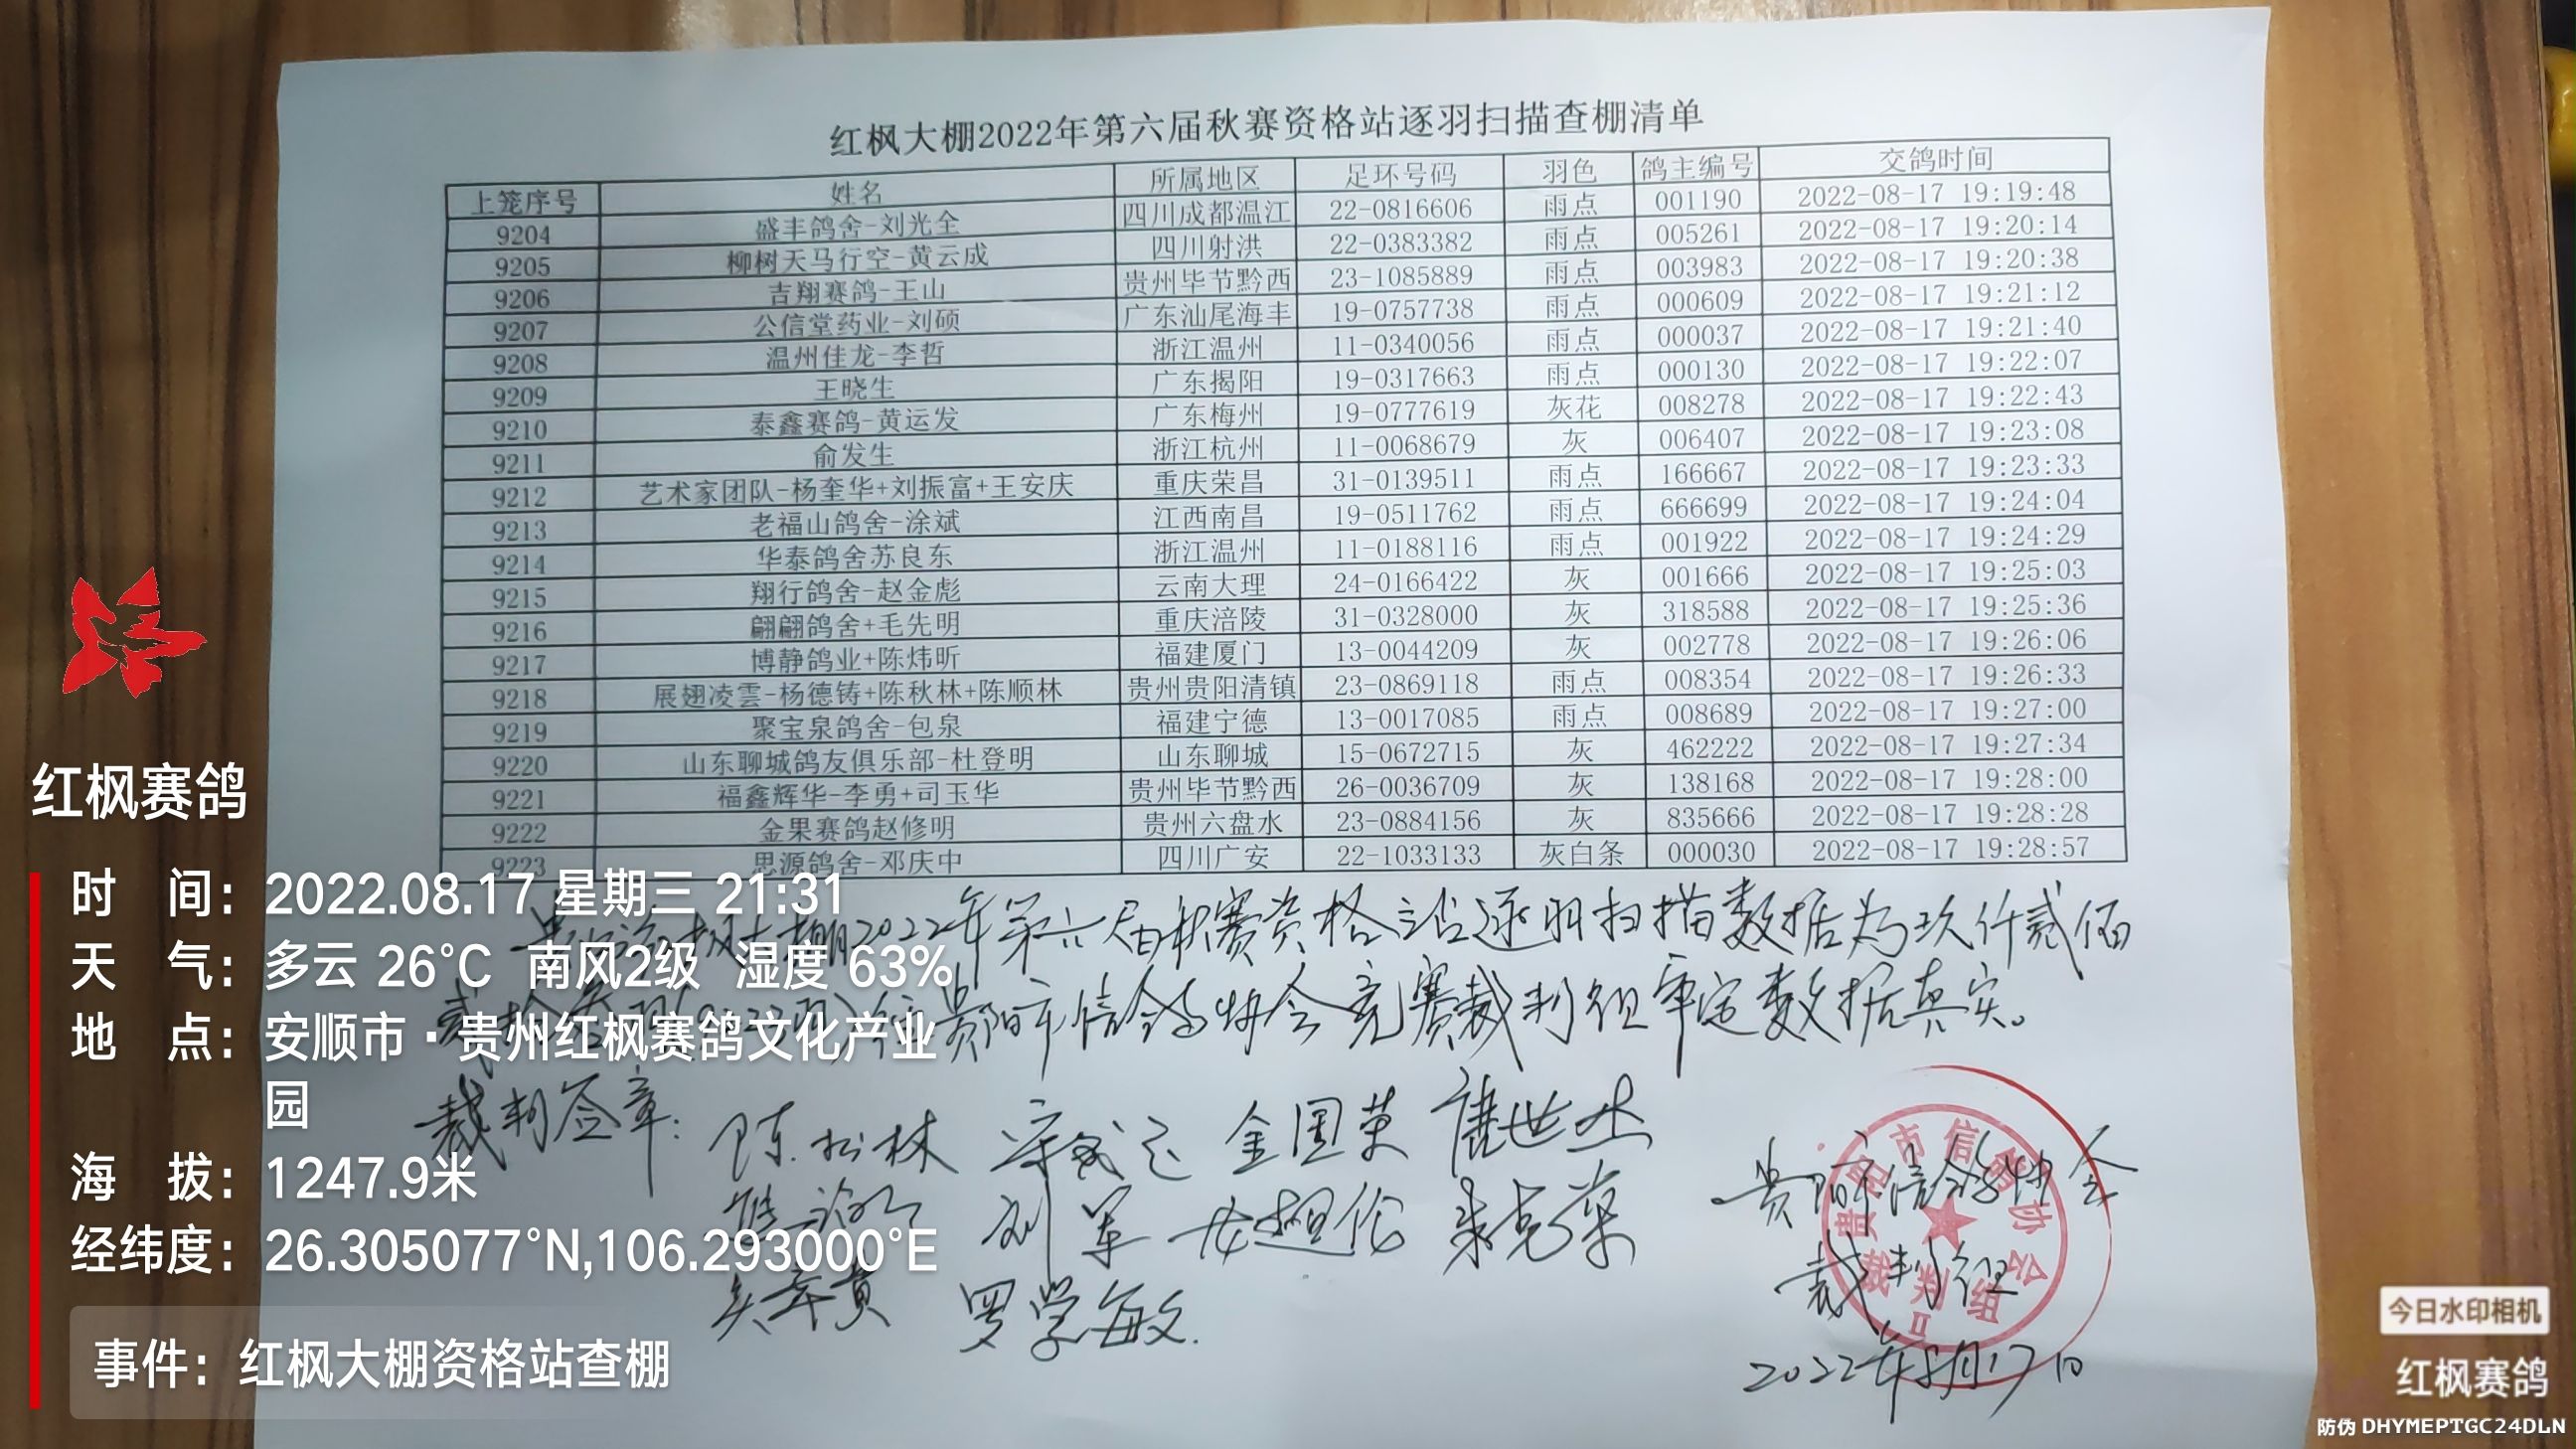 红枫大棚2022年第六届秋赛资格站逐羽扫描查棚清单
上笼序号 姓名 所属地区 足环号码 羽色 鸽主编号 交鸽时间
9204 盛丰鸽舍-刘光全 四川成都温江 22-0816606 雨点 001190 2022-08-17 19:19:48
9205 柳树天马行空-黄云成 四川射洪 22-0383382 雨点 005261 2022-08-17 19:20:14
9206 吉翔赛鸽-王山 贵州毕节黔西 23-1085889 雨点 003983 2022-08-17 19:20:38
9207 公信堂药业-刘硕 广东汕尾海丰 19-0757738 雨点 000609 2022-08-17 19:21:12
9208 温州佳龙-李哲 浙江温州 11-0340056 雨点 000037 2022-08-17 19:21:40
9209 王晓生 广东揭阳 19-0317663 雨点 000130 2022-08-17 19:22:07
9210 泰鑫赛鸽-黄运发 广东梅州 19-0777619 灰花 008278 2022-08-17 19:22:43
9211 俞发生 浙江杭州 11-0068679 灰 006407 2022-08-17 19:23:08
9212 艺术家团队-杨奎华+刘振富+王安庆 重庆荣昌 31-0139511 雨点 166667 2022-08-17 19:23:33
9213 老福山鸽舍-涂斌 江西南昌 19-0511762 雨点 666699 2022-08-17 19:24:04
9214 华泰鸽舍苏良东 浙江温州 11-0188116 雨点 001922 2022-08-17 19:24:29
9215 翔行鸽舍-赵金彪 云南大理 24-0166422 灰 001666 2022-08-17 19:25:03
9216 翩翩鸽舍+毛先明 重庆涪陵 31-0328000 灰 318588 2022-08-17 19:25:36
9217 博静鸽业+陈炜昕 福建厦门 13-0044209 灰 002778 2022-08-17 19:26:06
9218 展翅凌雲-杨德铸+陈秋林+陈顺林 贵州贵阳清镇 23-0869118 雨点 008354 2022-08-17 19:26:33
9219 聚宝泉鸽舍-包泉 福建宁德 13-0017085 雨点 008689 2022-08-17 19:27:00
9220 山东聊城鸽友俱乐部-杜登明 山东聊城 15-0672715 灰 462222 2022-08-17 19:27:34
9221 福鑫辉华-李勇+司玉华 贵州毕节黔西 26-0036709 灰 138168 2022-08-17 19:28:00
9222 金果赛鸽赵修明 贵州六盘水 23-0884156 灰 835666 2022-08-17 19:28:28
9223 思源鸽舍-邓庆中 四川广安 22-1033133 灰白条 000030 2022-08-17 19:28:57
大棚2022年第六届秋赛资格站逐羽扫描数据为玖仟贰佰
贵阳市信鸽协会竞赛裁判组审定数据真实。
裁判签章: 陈松林 金国荣 唐世
刘军 朱克荣
罗学敏
贵阳市信鸽协会
裁判组
2022年8月17日
贵阳市信鸽协会
裁判组
II
红枫赛鸽
时 间: 2022.08.17 星期三 21:31
天 气: 多云 26℃ 南风2级 湿度 63%
地 点: 安顺市·贵州红枫赛鸽文化产业
园
海 拔: 1247.9米
经纬度: 26.305077°N,106.293000°E
事件: 红枫大棚资格站查棚
今日水印相机
红枫赛鸽
防伪 DHYMEPTGC24DLN